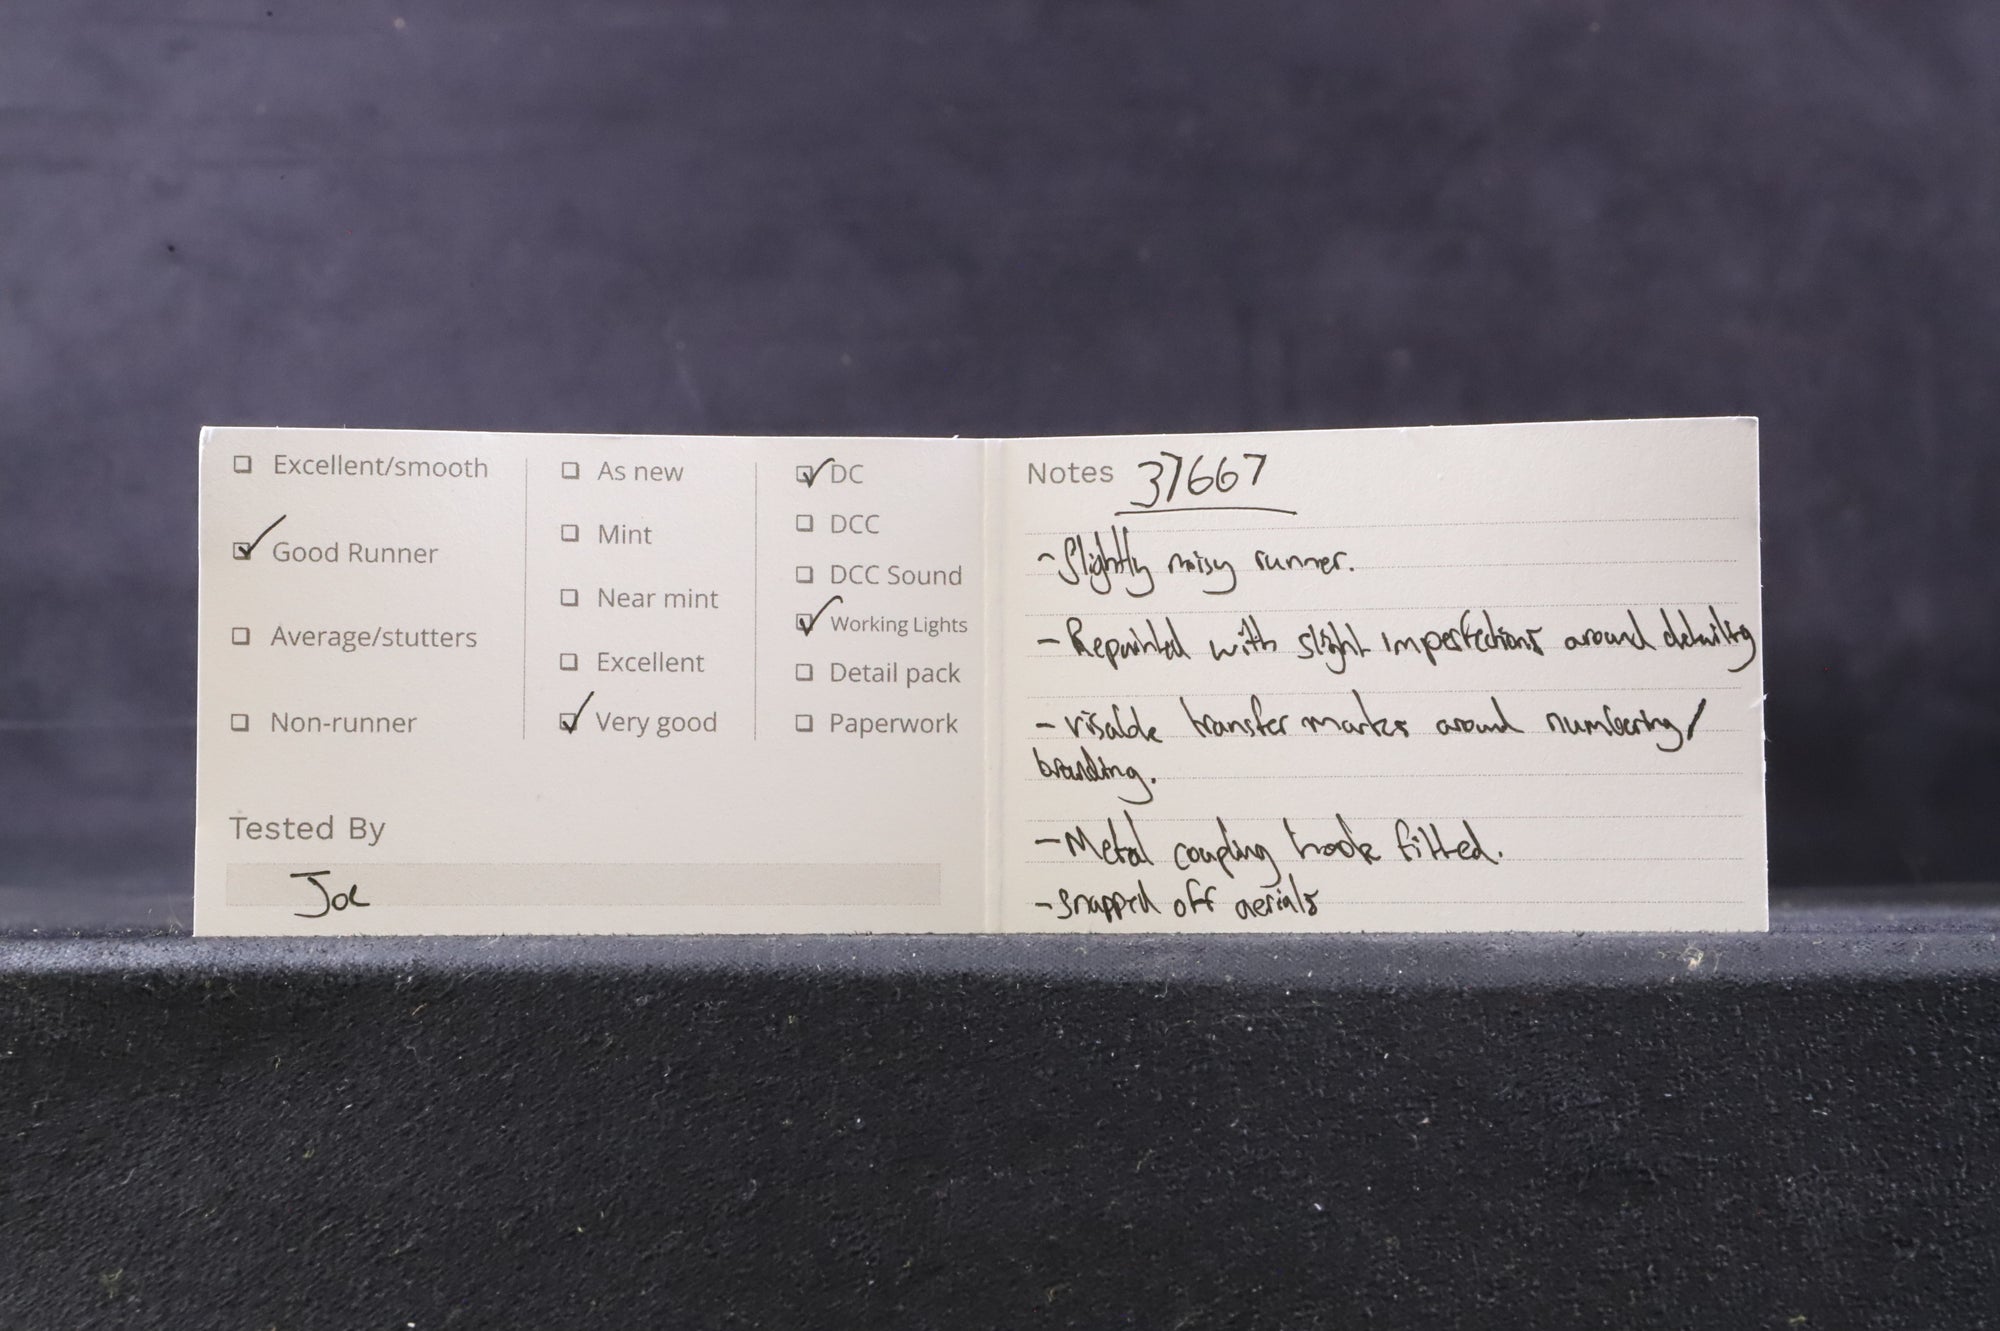 Excellent/smooth
Good Runner
Average/stutters
Non-runner
As new
Mint
Near mint
Excellent
Very good
DC
DCC
DCC Sound
Working Lights
Detail pack
Paperwork
Tested By
Joe
Notes 37667
- Slightly noisy runner.
- Repainted with slight imperfections around detailing
- visable transfer marks around numbering/
branding.
- Metal coupling hook fitted.
- snapped off aerials